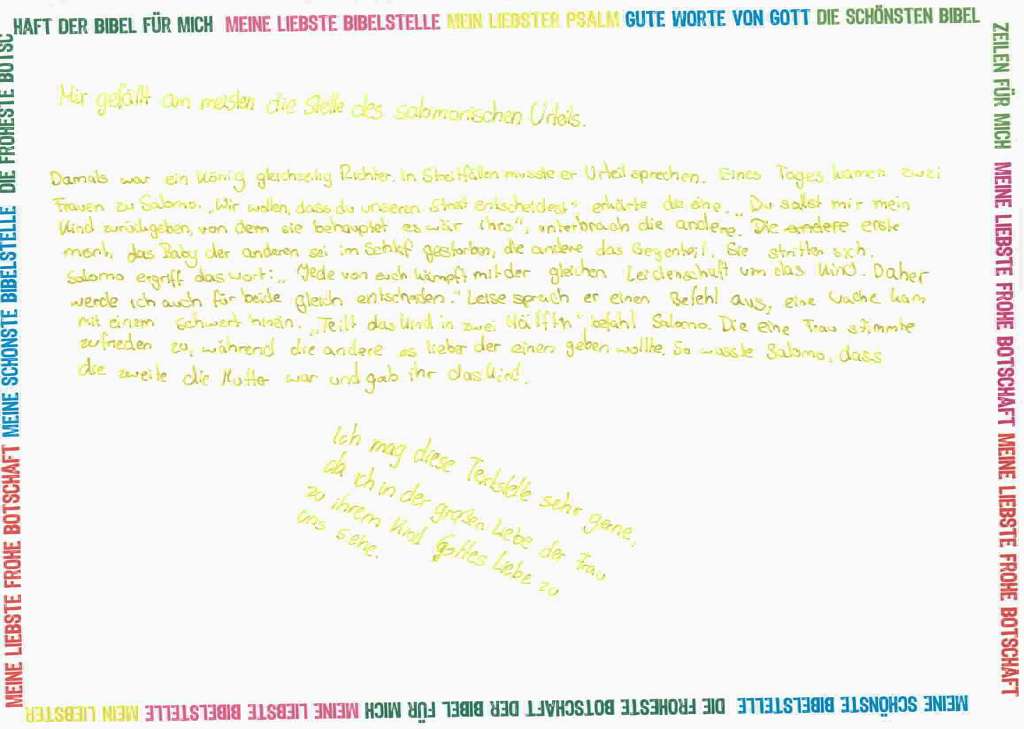 HAFT DER BIBEL FÜR MICH MEINE LIEBSTE BIBELSTELLE MEIN LIEBSTER PSALM GUTE WORTE VON GOTT DIE SCHÖNSTEN BIBEL
ZEILEN FÜR MICH MEINE LIEBSTE FROHE BOTSCHAFT MEINE LIEBSTE FROHE BOTSCHAFT
Mir gefällt am meisten die Stelle des salomonischen Urteils.
Damals war ein König gleichzeitig Richter. In Streitfällen musste er Urteil sprechen. Eines Tages kamen zwei
Frauen zu Salomo. „Wir wollen, dass du unseren Streit entscheidest“ erklärte die eine. „Du sollst mir mein
Kind zurückgeben, von dem sie behauptet es wär ihrs“, unterbrach die andere. Die andere erste
meint, das Baby der anderen sei im Schlaf gestorben, die andere das Gegenteil. Sie stritten sich.
Salomo ergriff das Wort: „Jede von euch kämpft mit der gleichen Leidenschaft um das Kind. Daher
werde ich auch für beide gleich entscheiden.“ Leise sprach er einen Befehl aus, eine Wache kam
mit einem Schwert hinein. „Teilt das Kind in zwei Hälftn“ befahl Salomo. Die eine Frau stimmte
zufrieden zu, während die andere es lieber der einen geben wollte. So wusste Salomo, dass
die zweite die Mutter war und gab ihr das Kind.
Ich mag diese Textstelle sehr gerne,
da ich in der großen Liebe der Frau
zu ihrem Kind Gottes Liebe zu
uns sehe.
MEINE SCHÖNSTE BIBELSTELLE DIE FROHESTE BOTSCHAFT DER BIBEL FÜR MICH MEINE LIEBSTE BIBELSTELLE MEIN LIEBSTER
MEINE LIEBSTE FROHE BOTSCHAFT MEINE SCHÖNSTE BIBELSTELLE DIE FROHESTE BOTSC